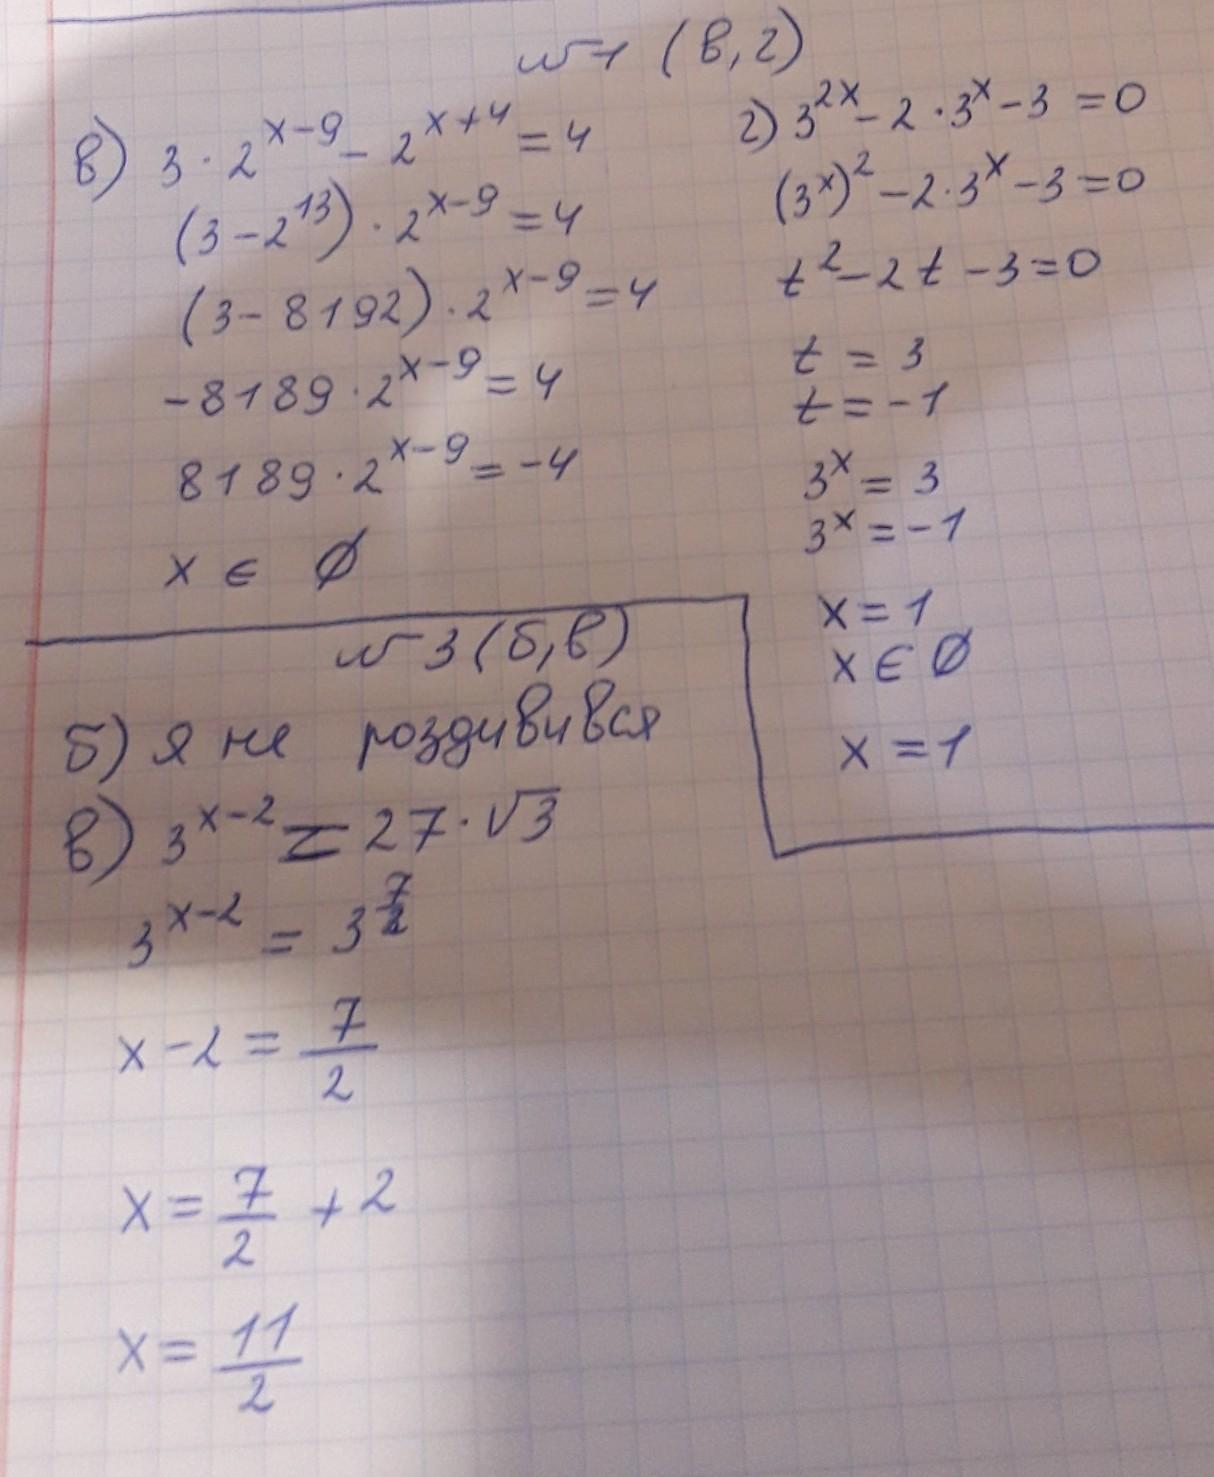 №1 (в, г)
в) 3 · 2^{x-9} - 2^{x+4} = 4
(3 - 2^{13}) · 2^{x-9} = 4
(3 - 8192) · 2^{x-9} = 4
-8189 · 2^{x-9} = 4
8189 · 2^{x-9} = -4
x ∈ ∅
г) 3^{2x} - 2 · 3^x - 3 = 0
(3^x)^2 - 2 · 3^x - 3 = 0
t^2 - 2t - 3 = 0
t = 3
t = -1
3^x = 3
3^x = -1
x = 1
x ∈ ∅
x = 1
№3 (б, в)
б) я не роздивився
в) 3^{x-2} = 27 · √3
3^{x-2} = 3^{7/2}
x - 2 = 7/2
x = 7/2 + 2
x = 11/2